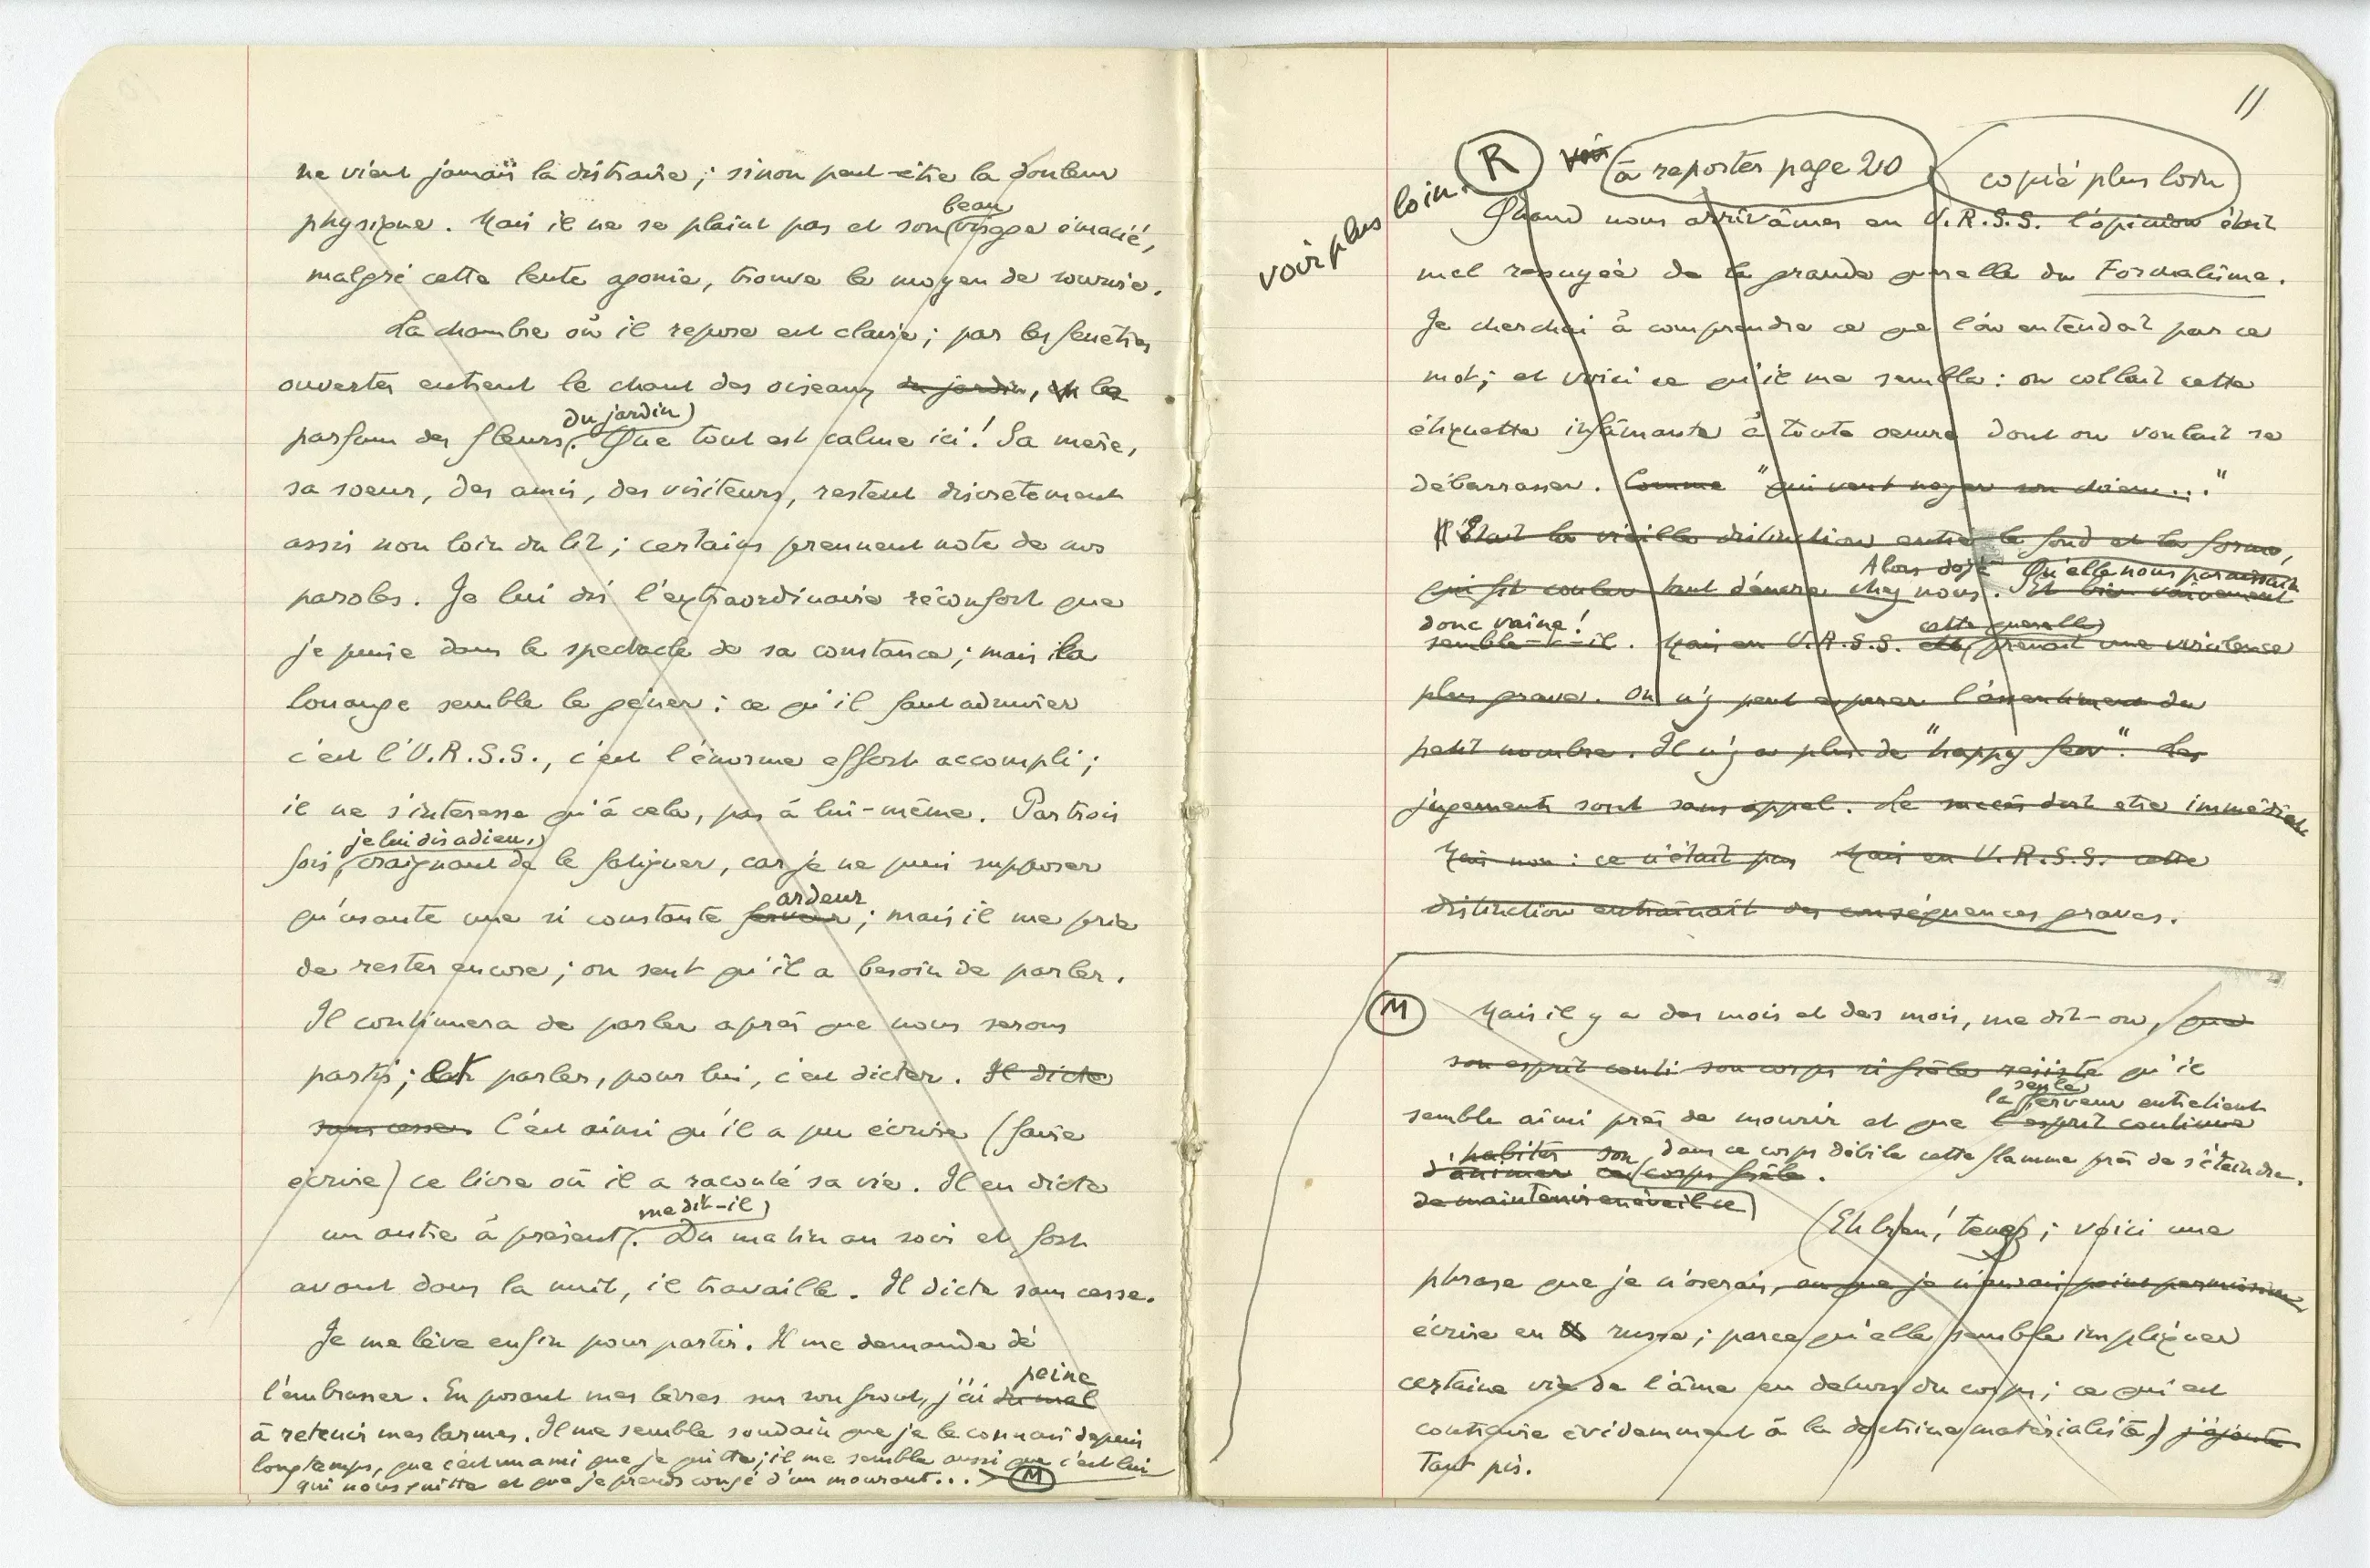 ne vient jamais la distraire ; sinon peut-être la douleur
beau
physique. Mais il ne se plaint pas et son visage émacié,
malgré cette lente agonie, trouve le moyen de sourire.
La chambre où il repose est claire ; par les fenêtres
ouvertes entrent le chant des oiseaux du jardin, et le
du jardin
parfum des fleurs. Que tout est calme ici ! Sa mère,
sa soeur, des amis, des visiteurs, restent discrètement
assis non loin du lit ; certains prennent note de nos
paroles. Je lui dis l'extraordinaire réconfort que
je puise dans le spectacle de sa constance ; mais la
louange semble le gêner : ce qu'il faut admirer
c'est l'U.R.S.S., c'est l'énorme effort accompli ;
il ne s'intéresse qu'à cela, pas à lui-même. Par trois
je lui dis adieu,
fois, craignant de le fatiguer, car je ne puis supposer
ardeur
qu'usante une si constante ferveur ; mais il me prie
de rester encore ; on sent qu'il a besoin de parler.
Il continuera de parler après que nous serons
partis ; et parler, pour lui, c'est dicter. Il dicte
sans cesse. C'est ainsi qu'il a pu écrire (faire
écrire) ce livre où il a raconté sa vie. Il en dicte
me dit-il
un autre à présent. Du matin au soir et fort
avant dans la nuit, il travaille. Il dicte sans cesse.
Je me lève enfin pour partir. Il me demande de
peine
l'embrasser. En posant mes lèvres sur son front, j'ai du mal
à retenir mes larmes. Il me semble soudain que je le connais depuis
longtemps, que c'est un ami que je quitte ; il me semble aussi que c'est lui
qui nous quitte et que je prends congé d'un mourant... M
11
R voir à reporter page 20 copié plus loin
voir plus loin.
Quand nous arrivâmes en U.R.S.S. l'opinion était
mal repugée de la grande querelle du Formalisme.
Je cherchai à comprendre ce que l'on entendait par ce
mot ; et voici ce qu'il me sembla : on collait cette
étiquette infâmante à toute oeuvre dont on voulait se
débarrasser. Comme "qui veut noyer son chien..."
C'était la vieille distinction entre le fond et la forme,
Alors déjà Qu'elle nous paraissait
qui fit couler tant d'encre chez nous. Et bien vainement
donc vaine ! cette querelle
semble-t-il. Mais en U.R.S.S. elle prenait une virulence
plus grave. On n'y peut espérer l'assentiment du
petit nombre. Il n'y a plus de "happy few". Les
jugements sont sans appel. Le succès doit être immédiat
Mais non : ce n'était pas Mais en U.R.S.S. cette
distinction entraînait des conséquences graves.
M Mais il y a des mois et des mois, me dit-on, que
son esprit son corps si frêle résiste qu'il
seule
la ferveur entretient
semble ainsi près de mourir et que l'esprit continue
habiter son dans ce corps débile cette flamme près de s'éteindre.
d'animer ce corps frêle.
de maintenir en éveil ce
(Eh bien ! tenez ; voici une
phrase que je n'oserais, ou que je n'aurais point permission
écrire en russe ; parce qu'elle semble impliquer
certaine vie de l'âme en dehors du corps ; ce qui est
contraire évidemment à la doctrine matérialiste) j'ajoute
Tant pis.